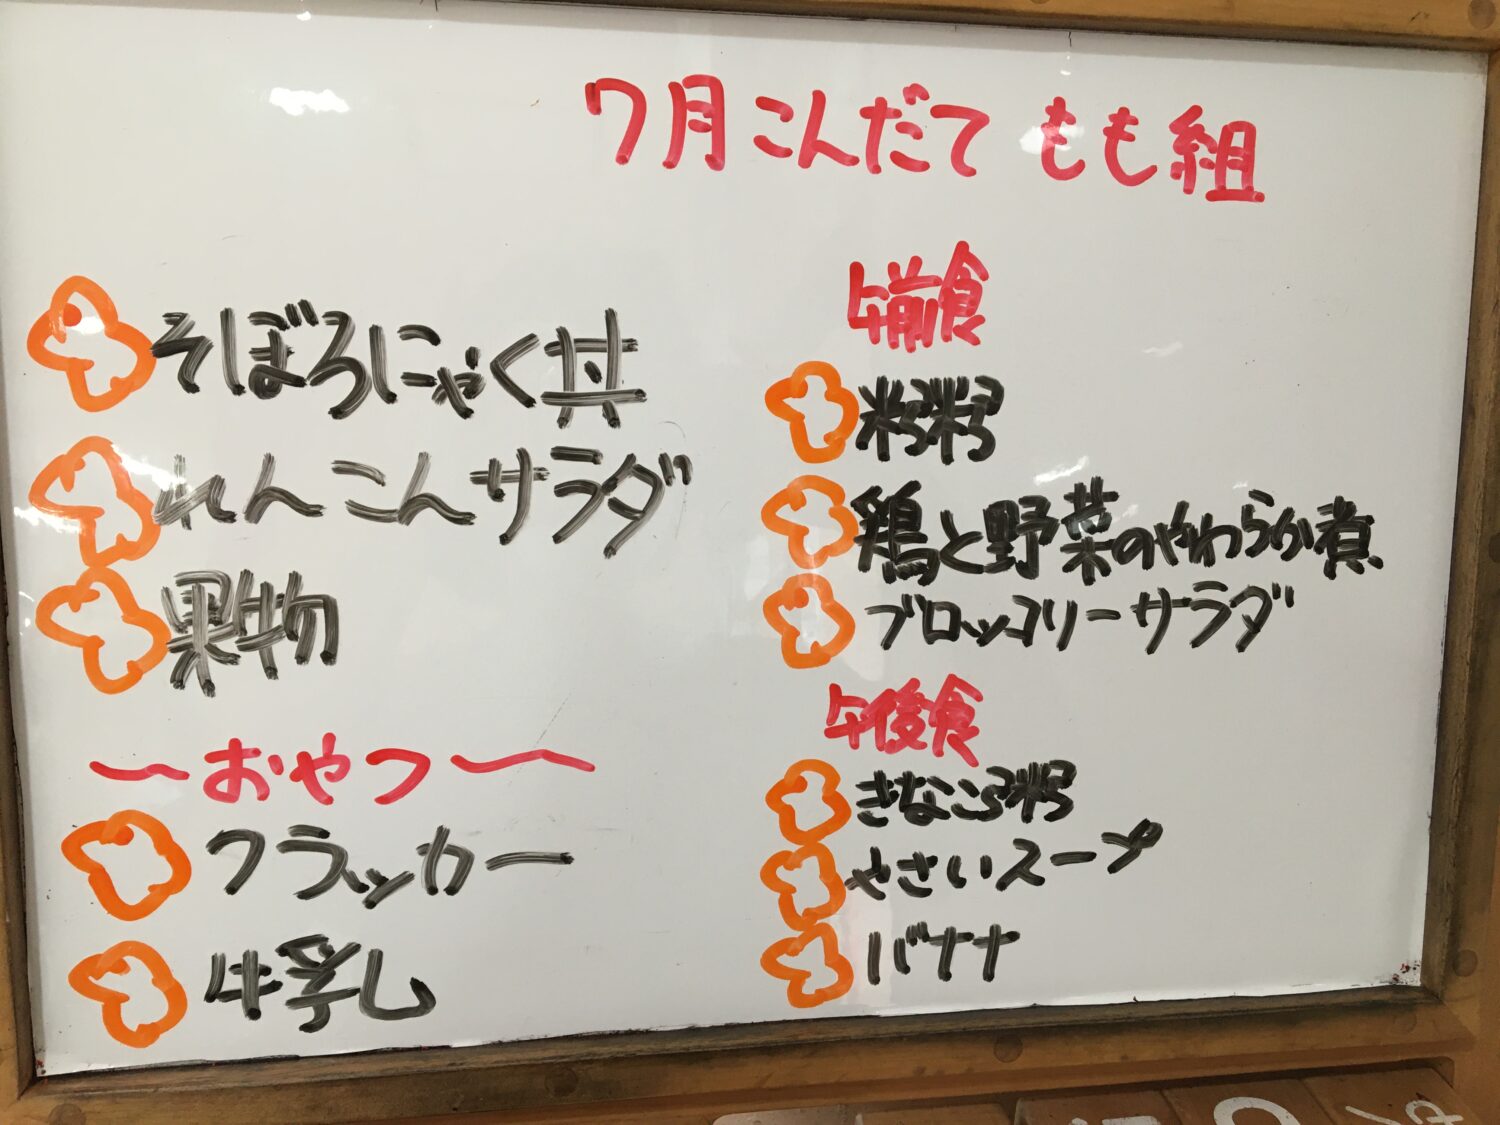 7月こんだて もも組
そぼろにゃく丼
れんこんサラダ
果物
〜おやつ〜
フラッカー
牛乳
午前食
粥
鶏と野菜のやわらか煮
ブロッコリーサラダ
午後食
きなこ粥
やさいスープ
バナナ